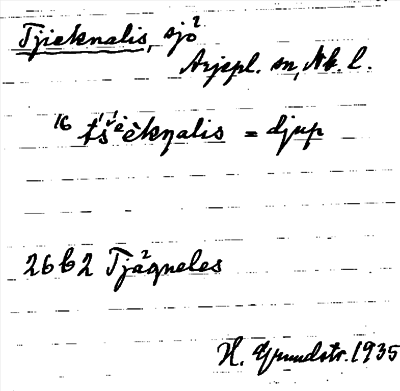 Tjieknalis, sjö²
Arjepl. sn, Nb. l.
16 tš́i̯èèkŋalis = djup
26 b 2 Tjä²gneles
H. Grundstr. 1935